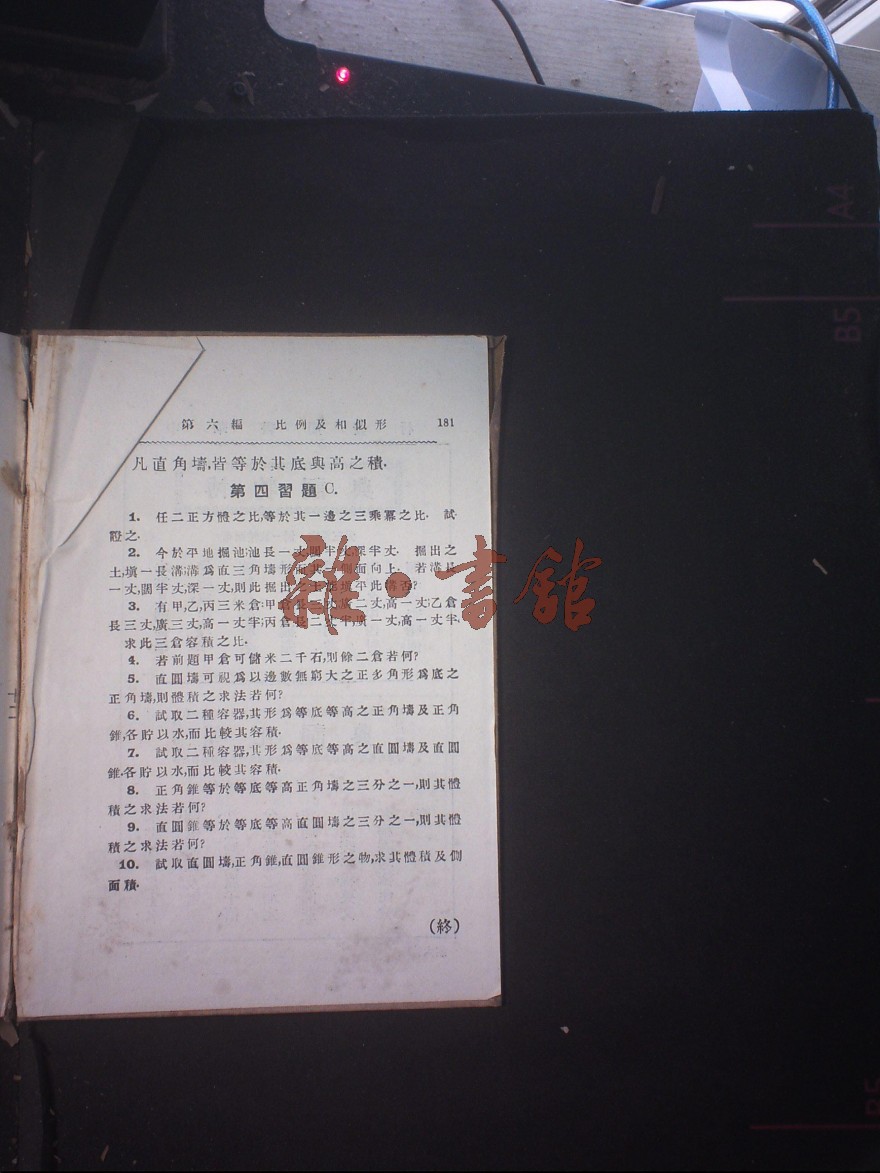 第六編 比例及相似形 181
凡直角壔,皆等於其底與高之積.
第四習題C.
1. 任二正方體之比,等於其一邊之三乘冪之比. 試
證之.
2. 今於平地掘池,池長一丈,闊半丈,深半丈. 掘出之
土,填一長溝,溝爲直三角壔形而其一側面向上. 若溝長
一丈,闊半丈,深一丈,則此掘出之土能填平此溝否?
3. 有甲,乙,丙三米倉:甲倉長 廣二丈,高一丈;乙倉
長三丈,廣三丈,高一丈半;丙倉長二丈半,廣一丈,高一丈半.
求此三倉容積之比.
4. 若前題甲倉可儲米二千石,則餘二倉若何?
5. 直圓壔可視爲以邊數無窮大之正多角形爲底之
正角壔,則體積之求法若何?
6. 試取二種容器,其形爲等底等高之正角壔及正角
錐,各貯以水,而比較其容積.
7. 試取二種容器,其形爲等底等高之直圓壔及直圓
錐,各貯以水,而比較其容積.
8. 正角錐等於等底等高正角壔之三分之一,則其體
積之求法若何?
9. 直圓錐等於等底等高直圓壔之三分之一,則其體
積之求法若何?
10. 試取直圓壔,正角錐,直圓錐形之物,求其體積及側
面積.
(終)
雜·書館
A4
B5
B5